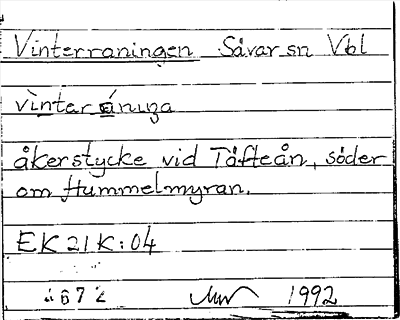 Vinterraningen Sävar sn Vbl
vìnter ániŋa
åkerstycke vid Täfteån, söder
om Hummelmyran.
EK 21 K:04
672 1992